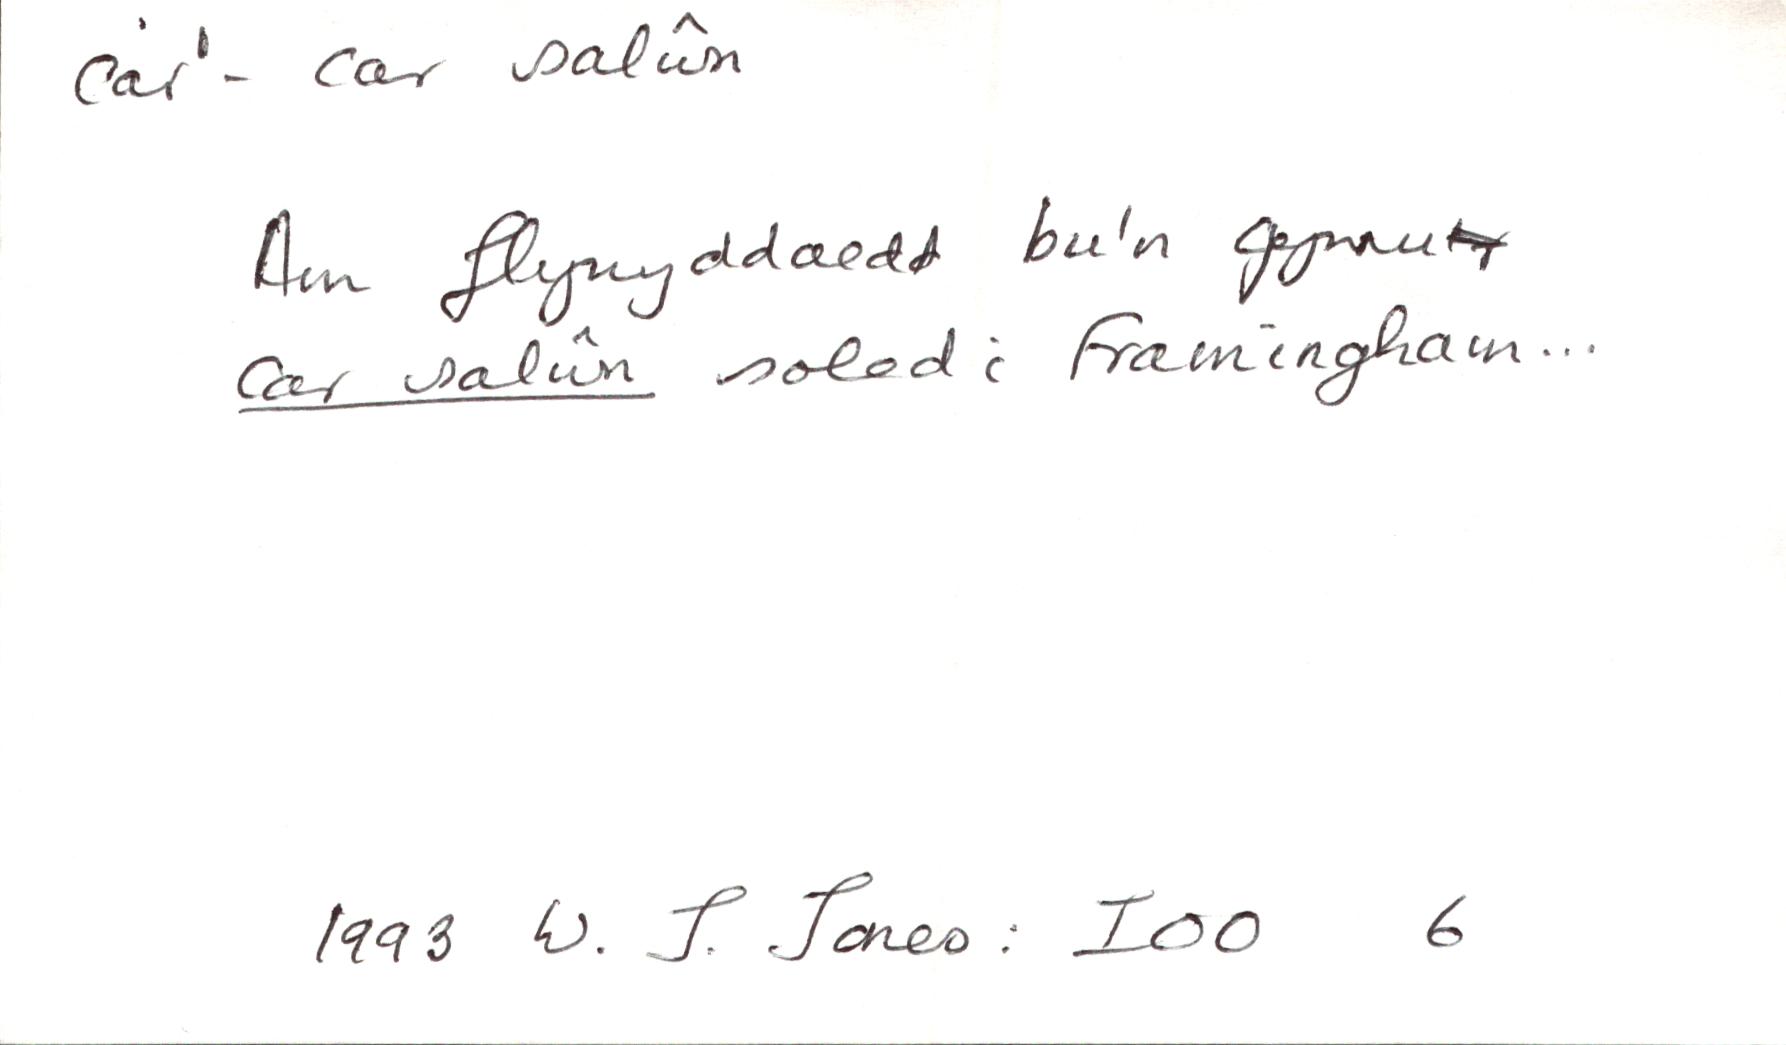 car¹ - car salŵn
Am flynyddoedd bu'n gyrru
car salŵn soled i Framingham...
1993 W. J. Jones: IOO 6